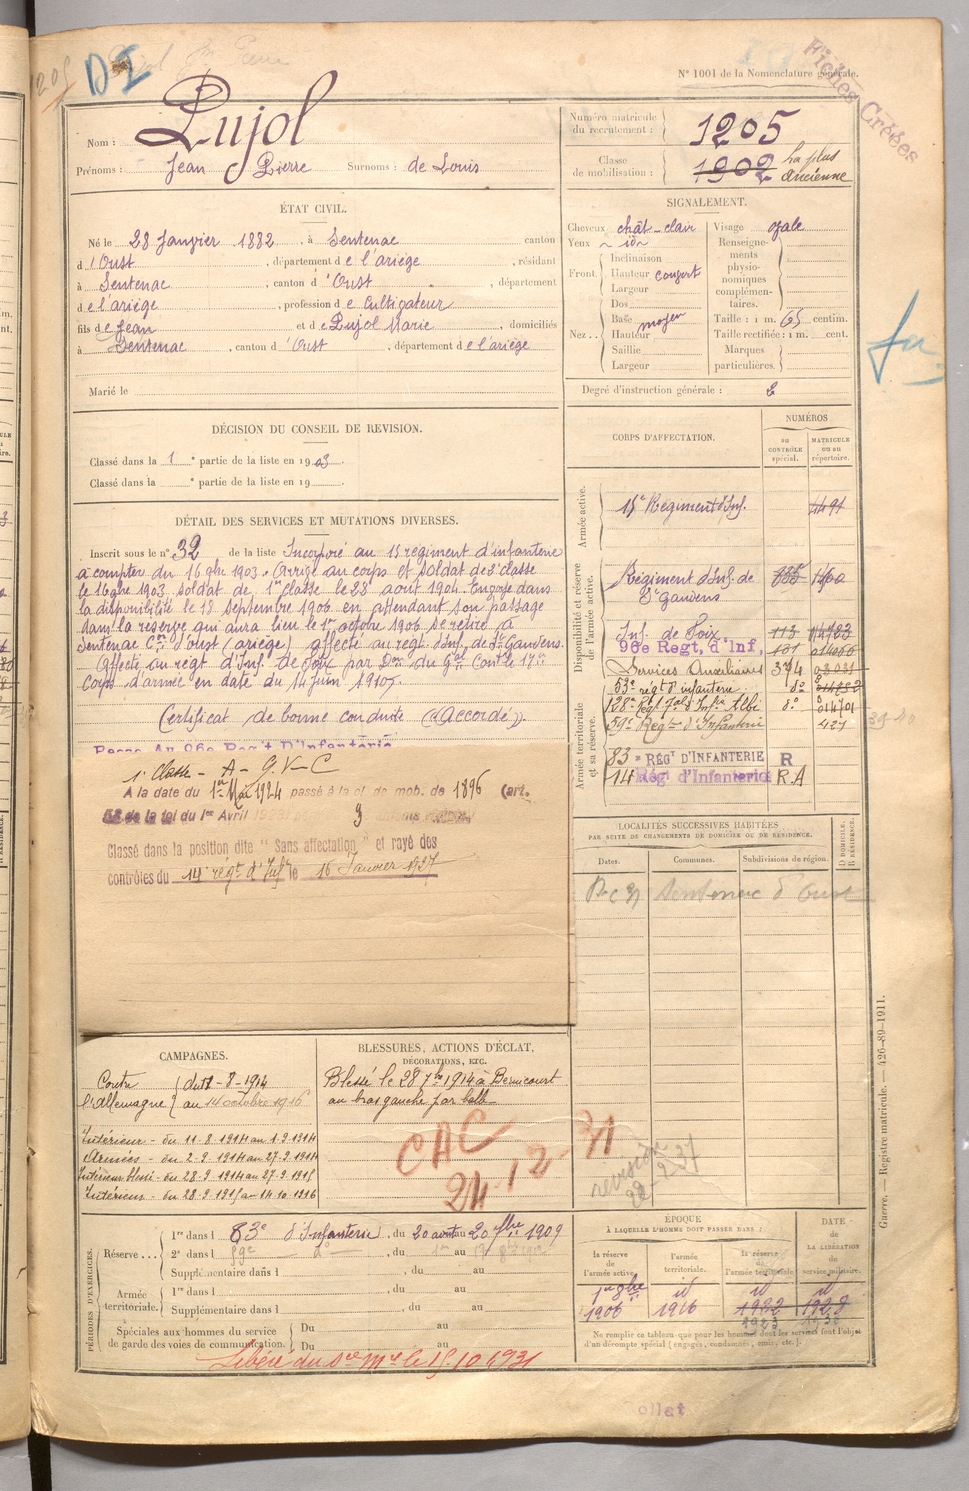 1205
D I
Pujol Jn Pierre
N° 1001 de la Nomenclature générale.
Fiches Créées
Nom : Pujol
Prénoms : Jean Pierre Surnoms : de Louis
Numéro matricule du recrutement : 1205
Classe de mobilisation : 1902 La plus ancienne
ÉTAT CIVIL.
Né le 28 Janvier 1882, à Sentenac canton
d'Oust, département de l'ariège, résidant
à Sentenac, canton d'Oust, département
de l'ariège, profession de Cultivateur
fils de Jean et de Pujol Marie, domiciliés
à Sentenac, canton d'Oust, département de l'ariège
Marié le
SIGNALEMENT.
Cheveux chât-clair
Yeux id
Front. Inclinaison
Hauteur couvert
Largeur
Nez.. Dos
Base moyen
Hauteur
Saillie
Largeur
Visage ovale
Renseignements physionomiques complémentaires.
Taille : 1 m. 65 centim.
Taille rectifiée : 1 m. cent.
Marques particulières.
Degré d'instruction générale :
DÉCISION DU CONSEIL DE REVISION.
Classé dans la 1 e partie de la liste en 1903.
Classé dans la e partie de la liste en 19
DÉTAIL DES SERVICES ET MUTATIONS DIVERSES.
Inscrit sous le n° 32 de la liste Incorporé au 15 régiment d'infanterie
à compter du 16 9bre 1903. Arrivé au corps et soldat de 2e classe
le 16 9bre 1903, soldat de 1re classe le 28 aout 1904. Engagé dans
la disponibilité le 18 Septembre 1906 en attendant son passage
dans la réserve qui aura lieu le 1er octobre 1906 se retire à
Sentenac Con d'oust (ariège) affecté au regt d'Inf. de St Gaudens.
Affecté au régt d'Inf. de Foix par Don du Gal Cont le 17e
Corps d'armée en date du 14 Juin 1907.
Certificat de bonne conduite "Accordé".
Passé Au 96e Reg't D'Infanterie
1e Classe - A - G. V - C
A la date du 1er Mai 1924 passé à la cl. de mob. de 1896 (art.
58 de la loi du 1er Avril 1923) 3
Classé dans la position dite "Sans affectation" et rayé des
contrôles du 14e régt d'Infie le 16 Janvier 1927
CORPS D'AFFECTATION.
NUMÉROS
au CONTRÔLE spécial.
MATRICULE ou au répertoire.
Armée active.
15e Régiment d'Inf. 4491
Disponibilité et réserve de l'armée active.
Régiment d'Inf. de St Gaudens 835
Inf. de Foix 113
96e Regt, d'Inf, 101
Services Auxiliaires 374
53e regt d'infanterie do
Armée territoriale et sa réserve.
128e Regt Tal d'Infie Albi do 014701
59e Regt d'Infanterie 427
83e RÉGT D'INFANTERIE R
14 Régt d'Infanterie R.A
LOCALITÉS SUCCESSIVES HABITÉES
PAR SUITE DE CHANGEMENTS DE DOMICILE OU DE RÉSIDENCE.
D DOMICILE. R RÉSIDENCE.
Dates. Communes. Subdivisions de région.
Sentenac d'Oust
CAMPAGNES.
Contre l'Allemagne du 11-8-1914 au 14 octobre 1916
Intérieur - du 11-8-1914 au 1-9-1914
Armées - du 2-9-1914 au 27-9-1914
Intérieur blessé - du 28-9-1914 au 27-9-1915
Intérieur - du 28-9-1915 au 14-10-1916
BLESSURES, ACTIONS D'ÉCLAT,
DÉCORATIONS, ETC.
Blessé le 28 7bre 1914 à Bernicourt
au bras gauche par balle
CAC
24-12-31
revision
22-2-37
PÉRIODES D'EXERCICES.
Réserve... 1re dans l 83e d'Infanterie, du 20 aout au 20 7bre 1909
2e dans l 59e do, du au
Supplémentaire dans l, du au
Armée territoriale. 1re dans l, du au
Supplémentaire dans l, du au
Spéciales aux hommes du service de garde des voies de communication. Du au
Du au
Libéré du Sce Mre le 15.10.1931
ÉPOQUE
À LAQUELLE L'HOMME DOIT PASSER DANS :
la réserve de l'armée active
l'armée territoriale.
la réserve de l'armée territoriale
DATE DE LA LIBÉRATION du service militaire.
1er 8bre 1906
id 1916
id 1922
id 1928
1923
Ne remplir ce tableau que pour les hommes dont les services font l'objet
d'un décompte spécial (engagés, condamnés, omis, etc.).
Guerre. — Registre matricule. — 426-89-1911.
ollat